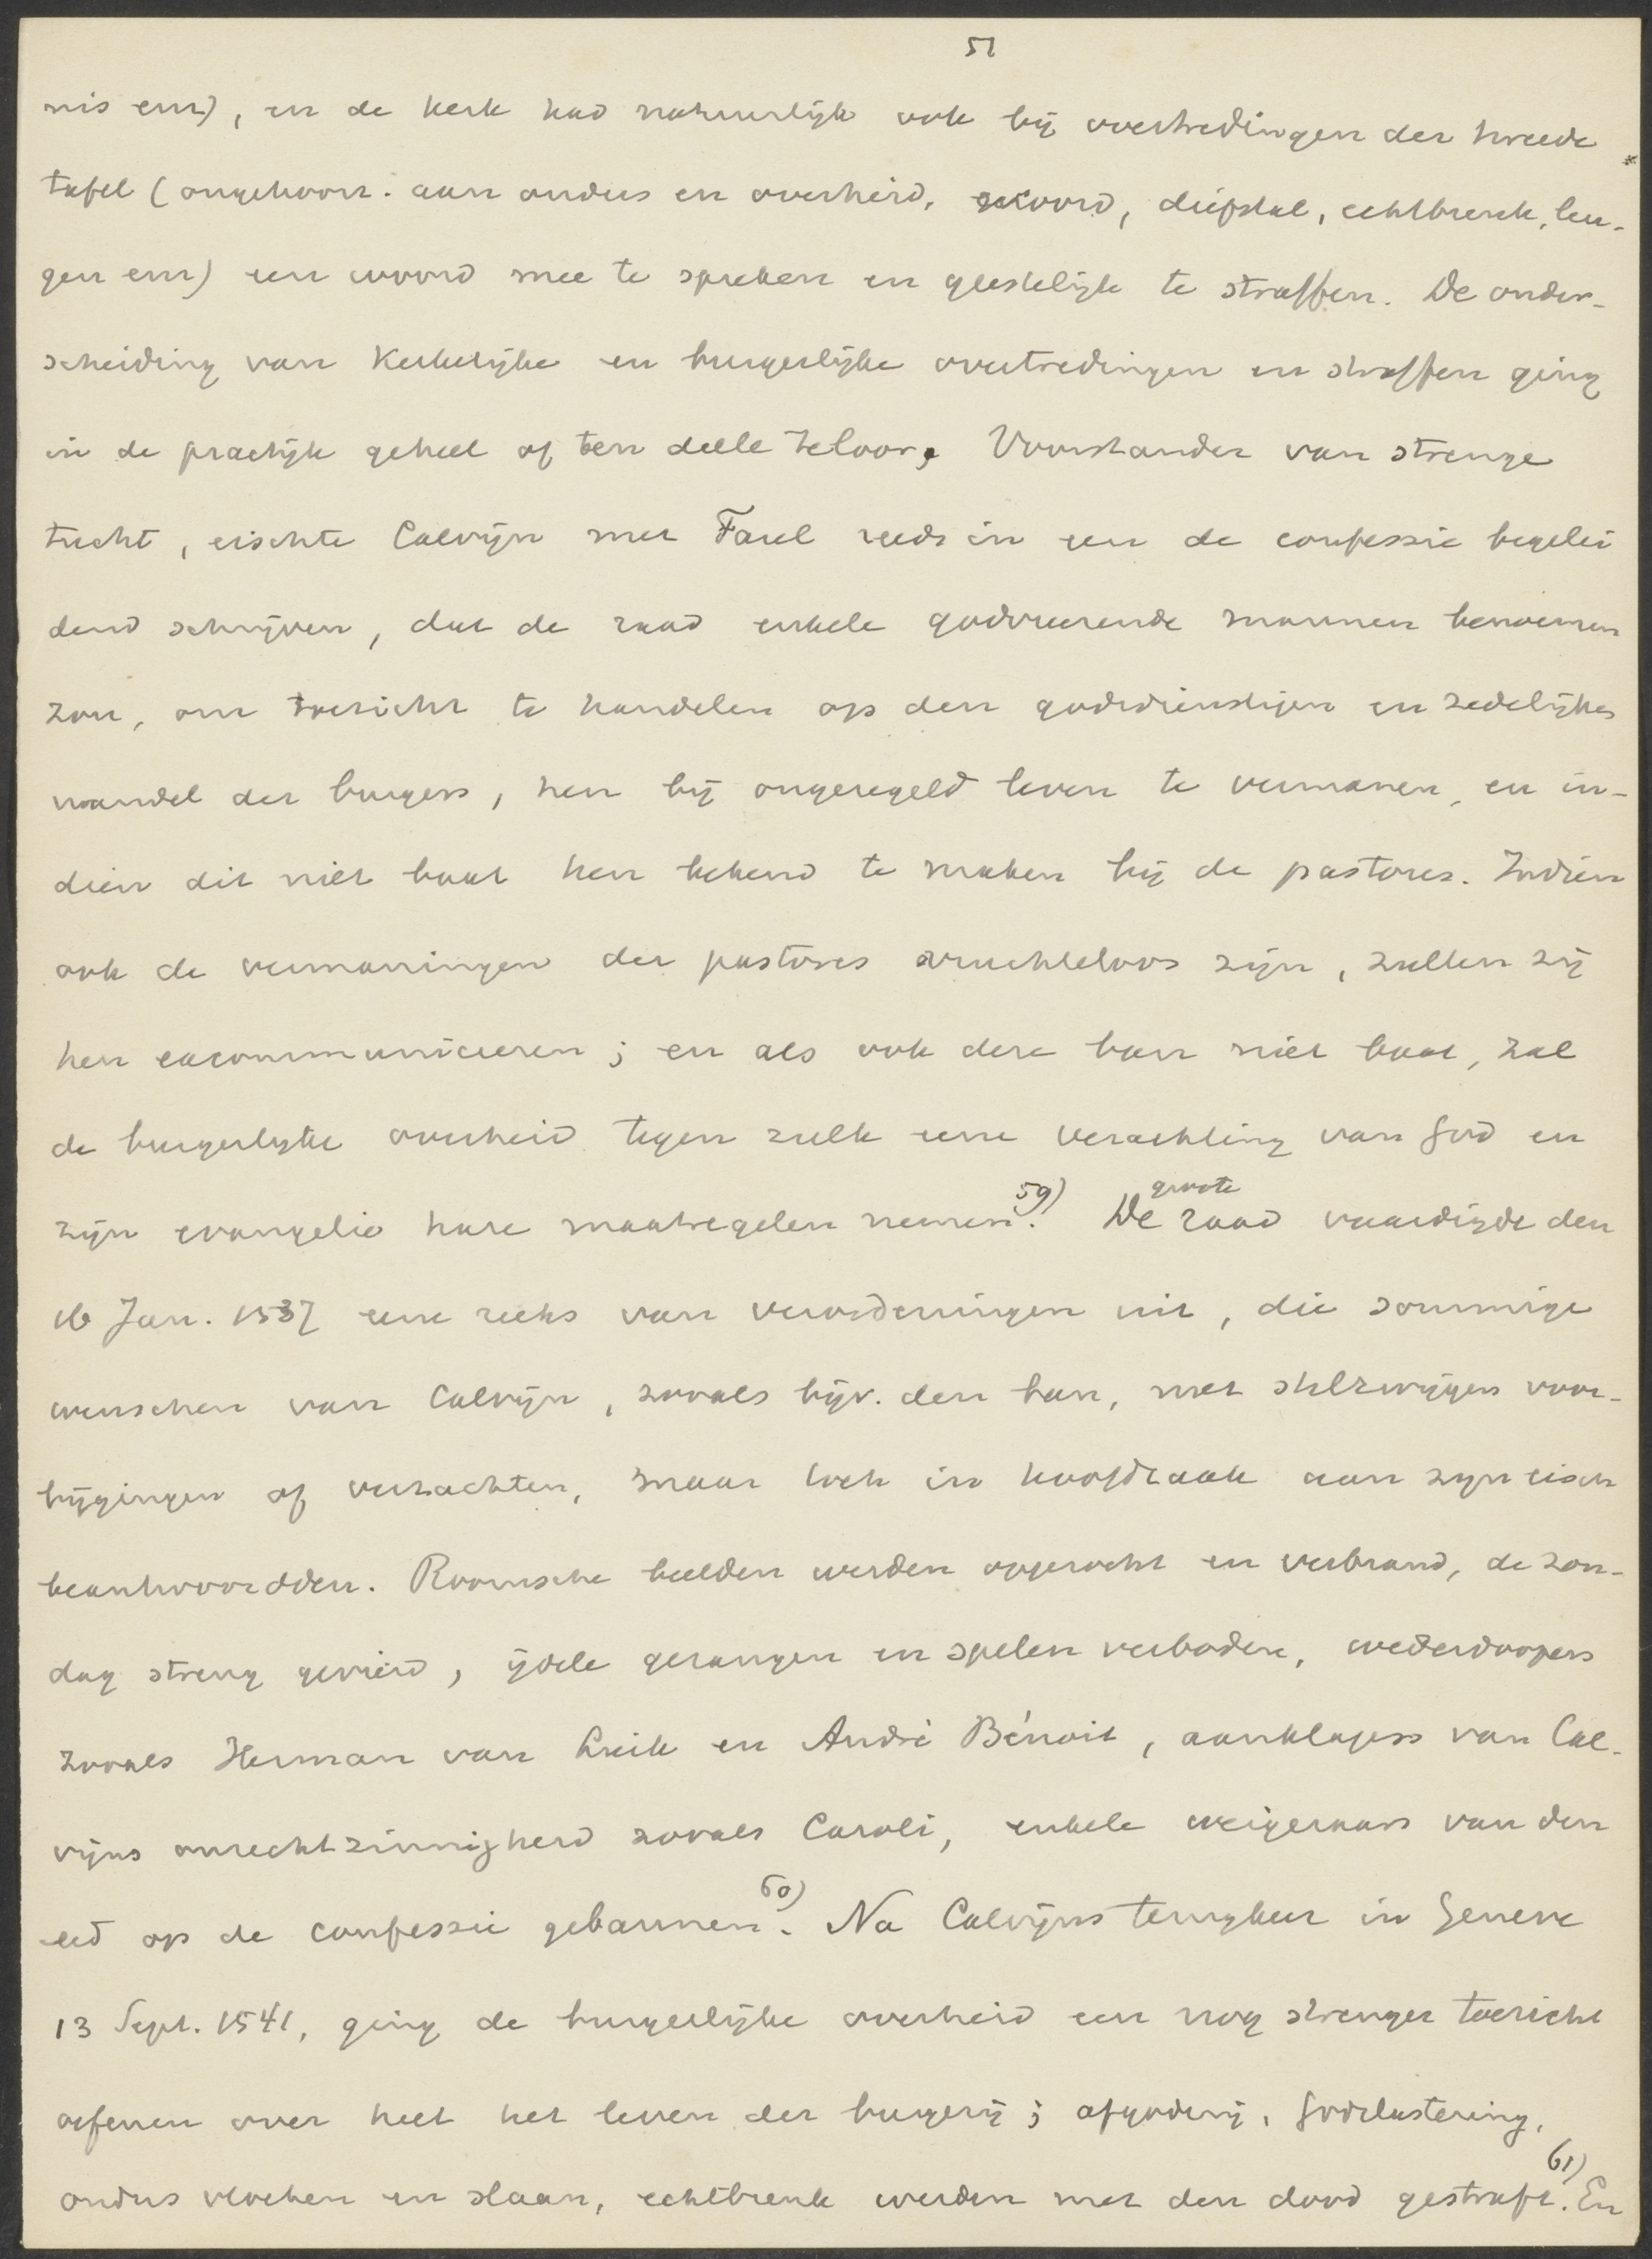 51
nis enz), en de kerk had natuurlijk ook bij overtredingen der tweede *
tafel (ongehoorz. aan ouders en overheid, moord, diefstal, echtbreuk, leu-
gen enz) een woord mee te spreken en geestelijk te straffen. De onder-
scheiding van kerkelijke en burgerlijke overtredingen en straffen ging
in de practijk geheel of ten deele teloor. Voorstander van strenge
tucht, eischte Calvijn met Farel reeds in een de confessie begelei
dend schrijven, dat de raad enkele godvreezende mannen benoemen
zou, om toezicht te houden op den godsdienstigen en zedelijken
wandel der burgers, hen bij ongeregeld leven te vermanen, en in-
dien dit niet baat hen bekend te maken bij de pastores. Indien
ook de vermaningen der pastores vruchteloos zijn, zullen zij
hen excommuniceeren; en als ook deze ban niet baat, zal
de burgerlijke overheid tegen zulk eene verachting van God en
zijn evangelie hare maatregelen nemen. 59) De groote raad vaardigde den
16 Jan. 1537 eene reeks van verordeningen uit, die sommige
wenschen van Calvijn, zooals bijv. den ban, met stilzwijgen voor-
bijgingen of verzachten, maar toch in hoofdzaak aan zijn eisch
beantwoordden. Roomsche beelden werden opgezocht en verbrand, de zon-
dag streng gevierd, ijdele gezangen en spelen verboden, wederdoopers
zooals Herman van Luik en André Bénoit, aanklagers van Cal-
vijns onrechtzinnigheid zooals Caroli, enkele weigeraars van den
eed op de confessie gebannen. 60) Na Calvijns terugkeer in Geneve
13 Sept. 1541, ging de burgerlijke overheid een nog strenger toezicht
oefenen over heel het leven der burgerij; afgoderij, Godslastering,
ouders vloeken en slaan, echtbreuk werden met den dood gestraft. 61) En